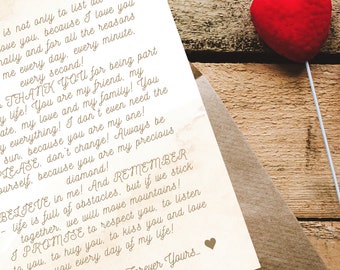 is not only to list all
love you, because I love you
nally and for all the reasons
me every day, every minute,
every second!
THANK YOU for being part
y life! You are my friend, my
ate, my love and my family! You
my everything! I don't even need the
sun, because you are my one!
EASE, don't change! Always be
ourself, because you are my precious
diamond!
BELIEVE in me! And REMEMBER
- life is full of obstacles, but if we stick
together, we will move mountains!
I PROMISE to respect you, to listen
to you, to hug you, to kiss you and love
you every day of my life!
Forever Yours...